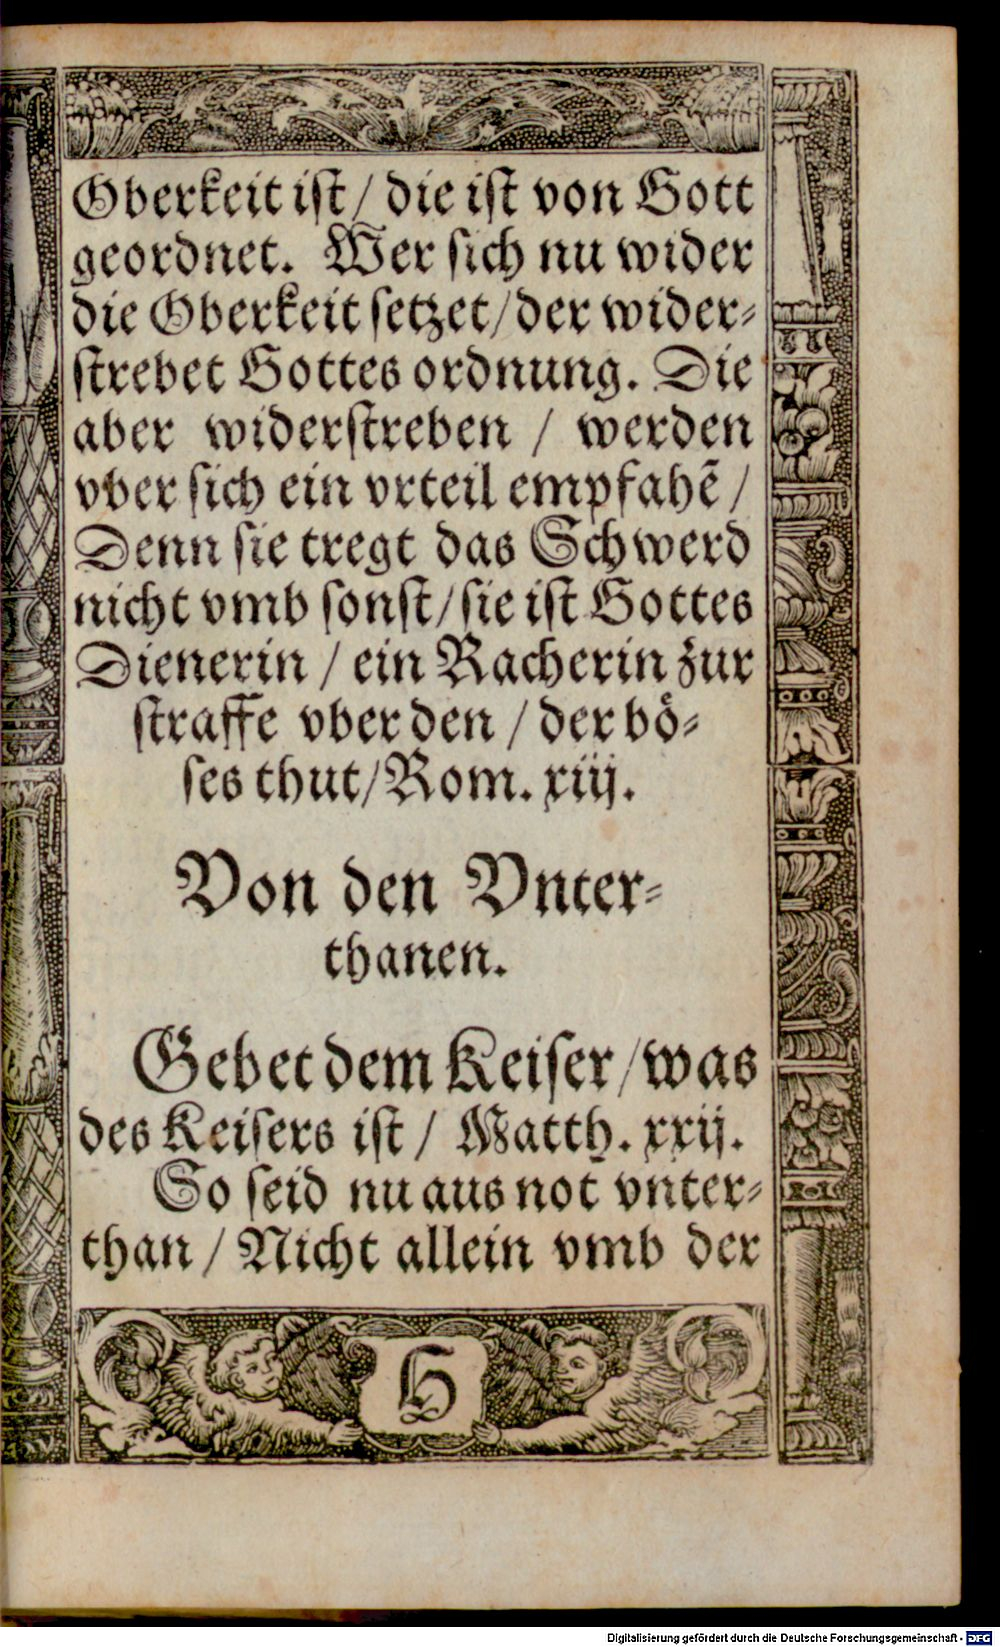 Oberkeit ist / die ist von Gott
geordnet. Wer sich nu wider
die Oberkeit setzet/der wider⸗
strebet Gottes ordnung. Die
aber widerstreben / werden
vber sich ein vrteil empfahẽ /
Denn sie tregt das Schwerd
nicht vmb sonst/sie ist Gottes
Dienerin / ein Racherin zur
straffe vber den / der bö⸗
ses thut/Rom. xiij.
Von den Vnter⸗
thanen.
Gebet dem Keiser/was
des Keisers ist / Matth. xxij.
So seid nu aus not vnter⸗
than / Nicht allein vmb der
H
Digitalisierung gefördert durch die Deutsche Forschungsgemeinschaft - DFG